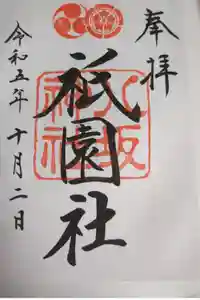 奉拝
祇園社
八坂神社
令和五年十月二日